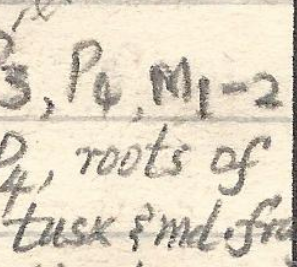 P3, P4, M1-2
P4, roots of
tusk & md. fra